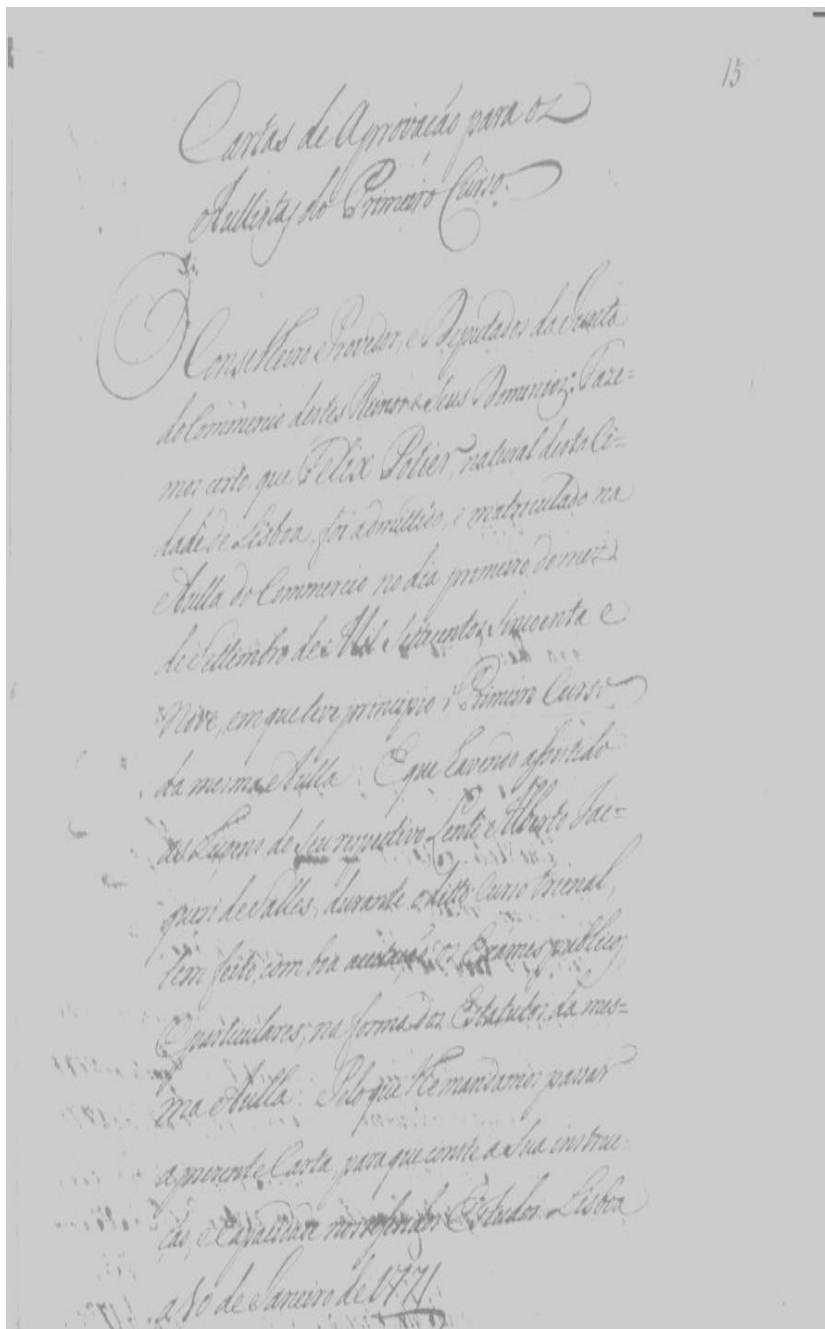 15
Cartas de Aprovacáo para oz
Aullistas do Primeiro Curso.
O Conselheiro Provedor, e Deputados da Junta
do Commercio destes Reinos e Seus Dominios: Faze=
mos certo, que Felix Potier, natural desta Ci=
dade de Lisboa, foi admittido, e matriculado na
Aulla do Commercio no dia primeiro do mez
de Settembro de Mil Setecentos Sincoenta e
Nove, em que teve principio o Primeiro Curso
da mesma Aulla: E que havendo assistido
ás Liçoens do seu respectivo Lente Alberto Jac=
queri de Salles, durante o ditto Curso trienal,
tem feito, com boa os Exámes publicos,
e particulares, na forma dos Estatutos da mes=
ma Aulla: Pelo que lhe mandamos passar
a prezente Carta, para que conste a Sua instruc=
cáo, e Capacidade nos referidos Estudos. Lisboa
a 10 de Janeiro de 1771